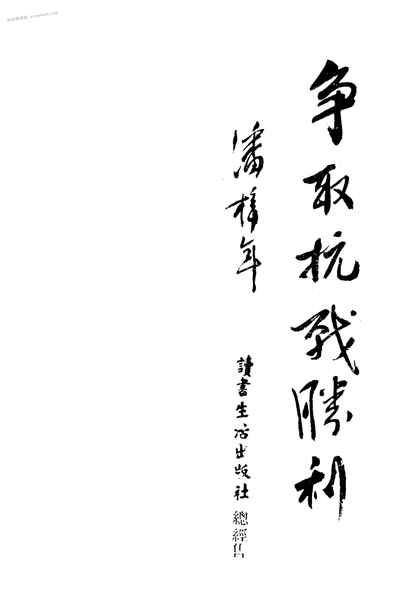 争取抗战勝利
潘梓年
讀書生活出版社 總經售